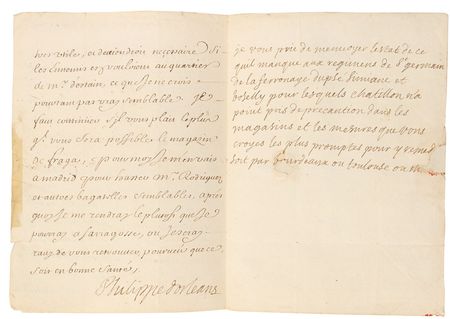 tres utile, et deviendroit necessaire si
les ennemis s y vouloient au quartier
de mr. dostain, ce que je ne crois
pourtant pas vray semblable. je
fais continuer s il vous plaist le plus
qu il vous sera possible le magazin
de fraga, pour moy je m en vais
a madrid pour finances mr. Rodriguez
et autres bagatelles semblables, apres
quoy je me rendray le plustost que je
pourray a sarragosse, ou je seray
de vous retrouver, pourveu que ce
soit en bonne santé,
Philippe d'orleans
je vous prie de menvoyer lestat de ce
qui manque aux regimens de St germain
de la ferronaye duplessis
et
boselly pour lesquels chatillon na
point pris de precaution dans les
magazins et les mesures que vous
croyes les plus promptes pour y remed
soit par bourdeaux ou toulouse